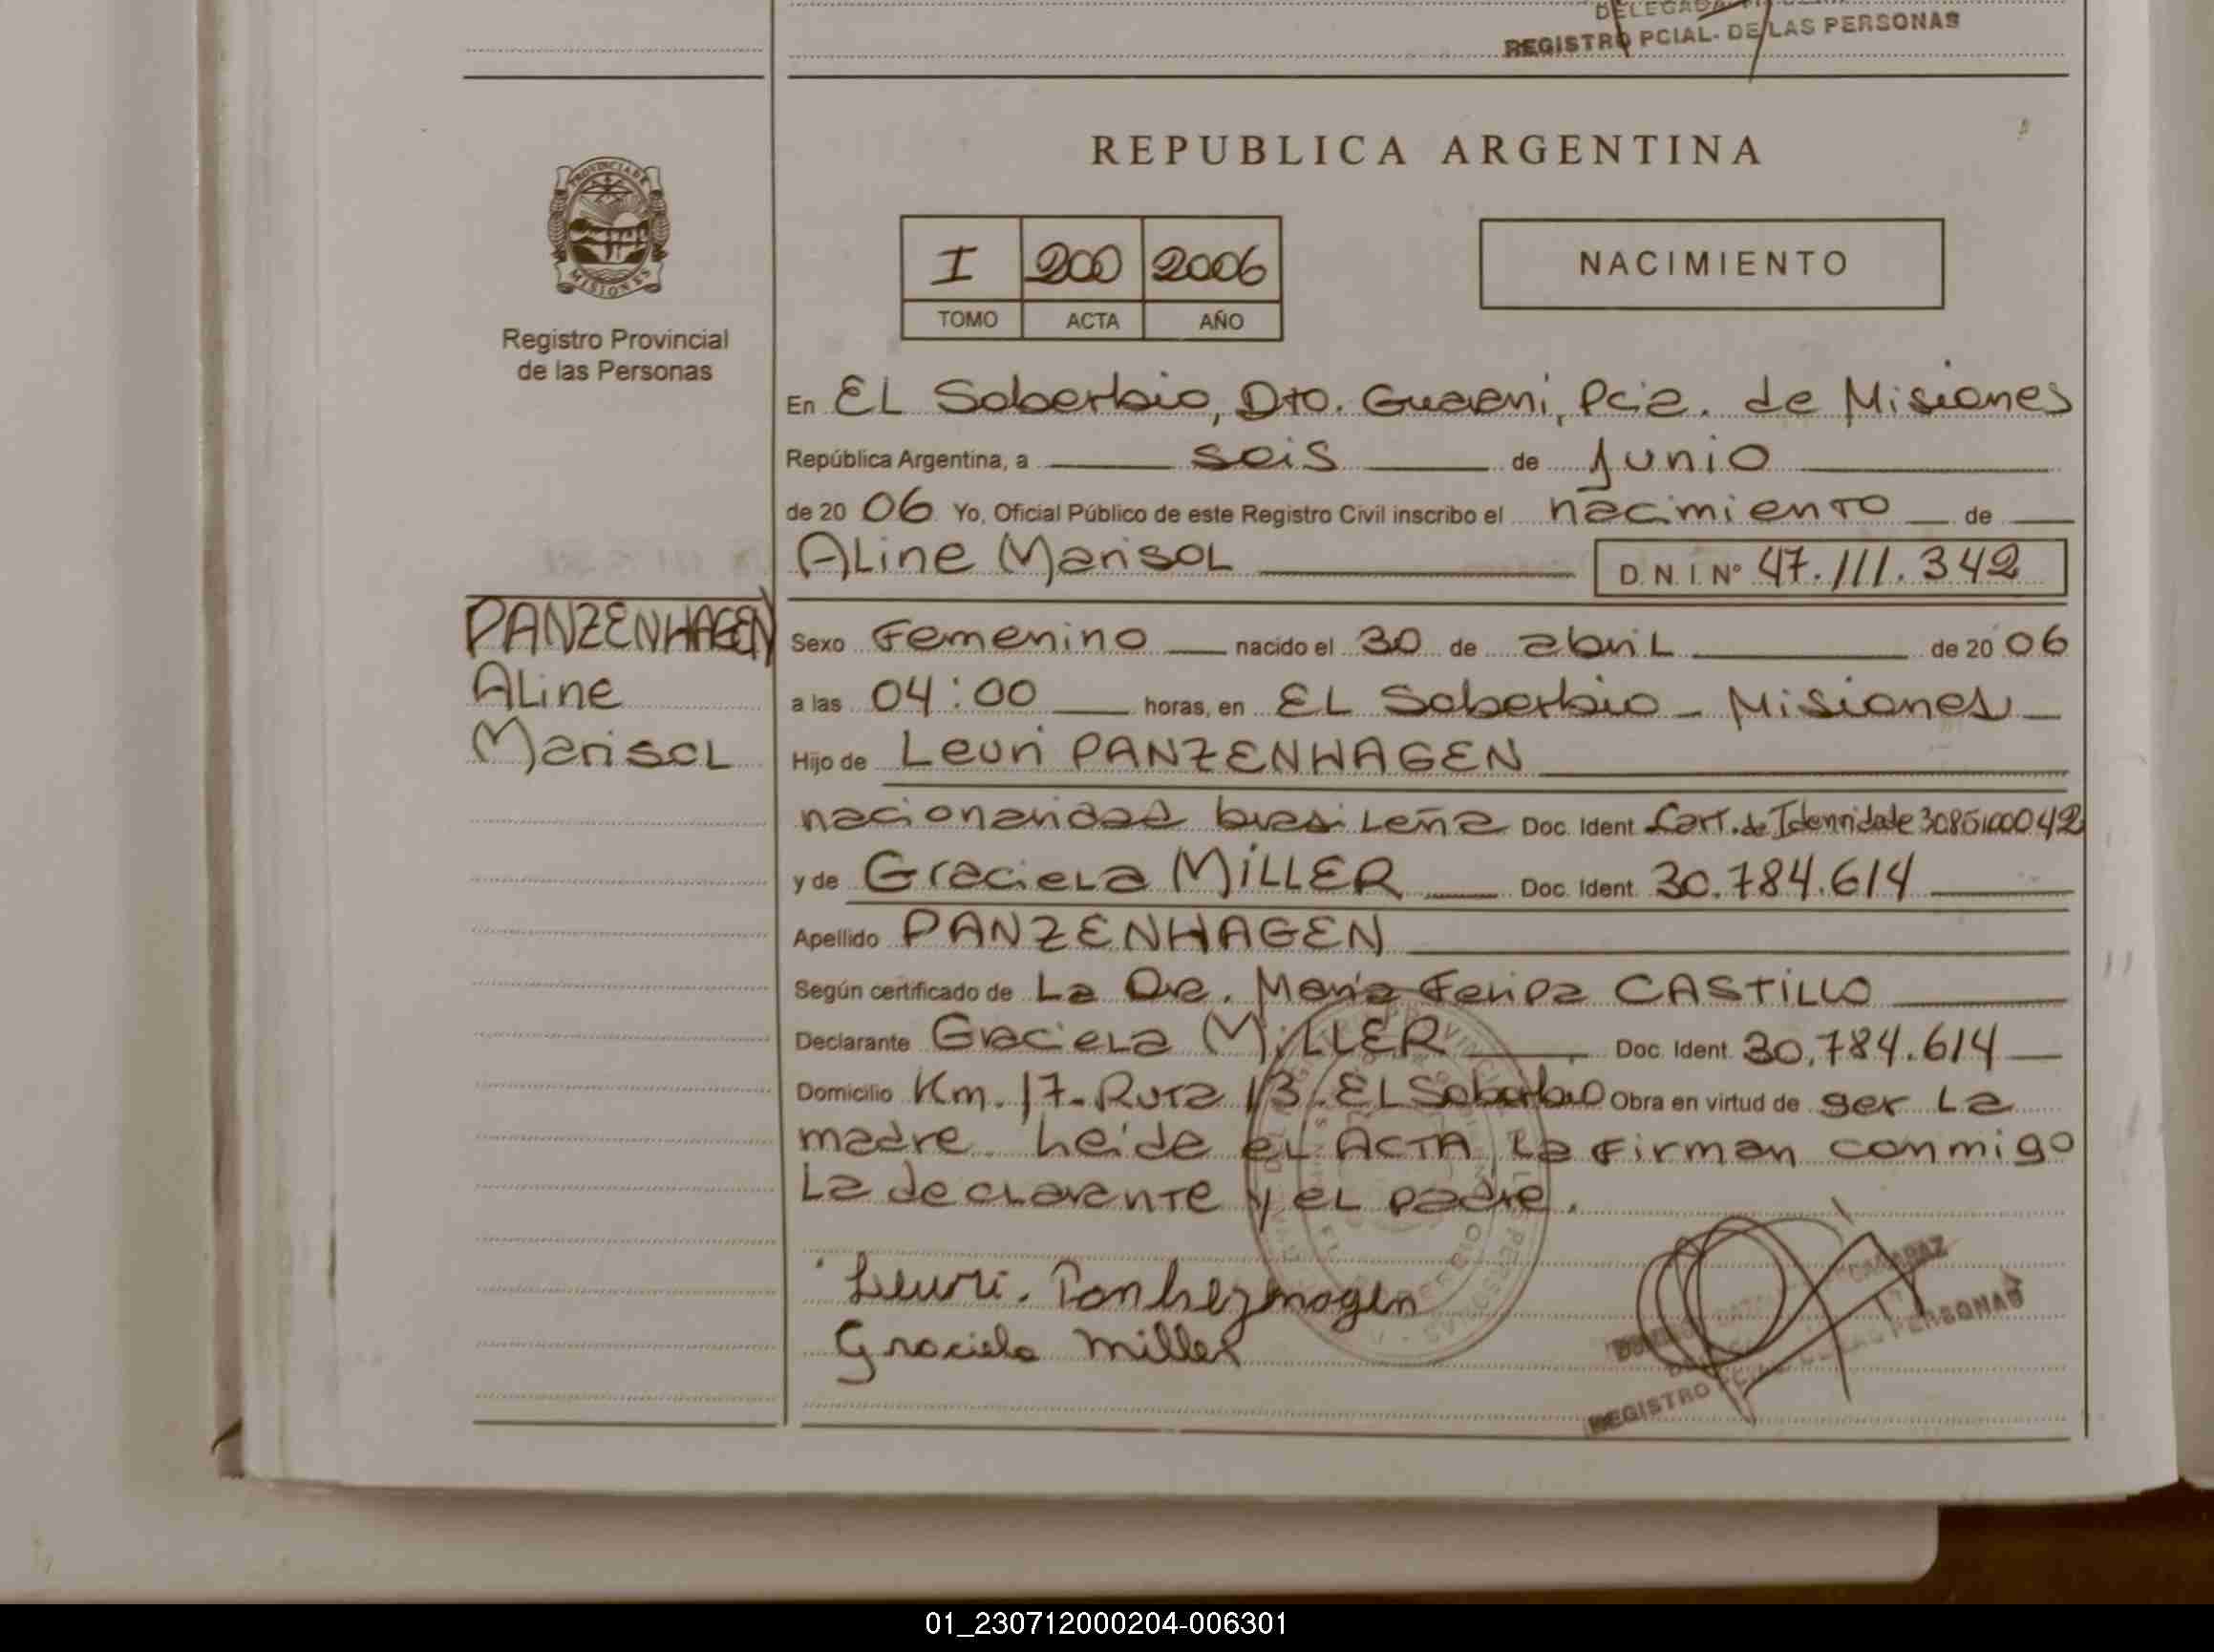 DELEGADA
REGISTRO PCIAL. DE LAS PERSONAS
PROVINCIA DE
MISIONES
Registro Provincial
de las Personas
REPUBLICA ARGENTINA
I 200 2006
TOMO ACTA AÑO
NACIMIENTO
En EL Soberbio, Dto. Guarani, Pcia. de Misiones
República Argentina, a seis de junio
de 20 06 Yo, Oficial Público de este Registro Civil inscribo el nacimiento de
ALine MarisoL D.N.I. Nº 47.111.342
PANZENHAGEN
ALine
MarisoL
Sexo Femenino nacido el 30 de abriL de 20 06
a las 04:00 horas, en EL Soberbio - Misiones -
Hijo de Leuri PANZENHAGEN
nacionalidad brasiLeña Doc. Ident. Cart. de Identidade 3085100042
y de GracieLa MiLLER Doc. Ident. 30.784.614
Apellido PANZENHAGEN
Según certificado de La Dra. María FeLipa CASTiLLO
Declarante GracieLa MiLLER Doc. Ident. 30.784.614
Domicilio Km. 17- Ruta 13. EL Soberbio Obra en virtud de ser La
madre. Leida eL ACTA La Firman conmigo
La decLarante y eL padre.
Leuri. Panhezmagen
Graciela Miller
REGISTRO PCIAL. DE LAS PERSONAS
01_230712000204-006301